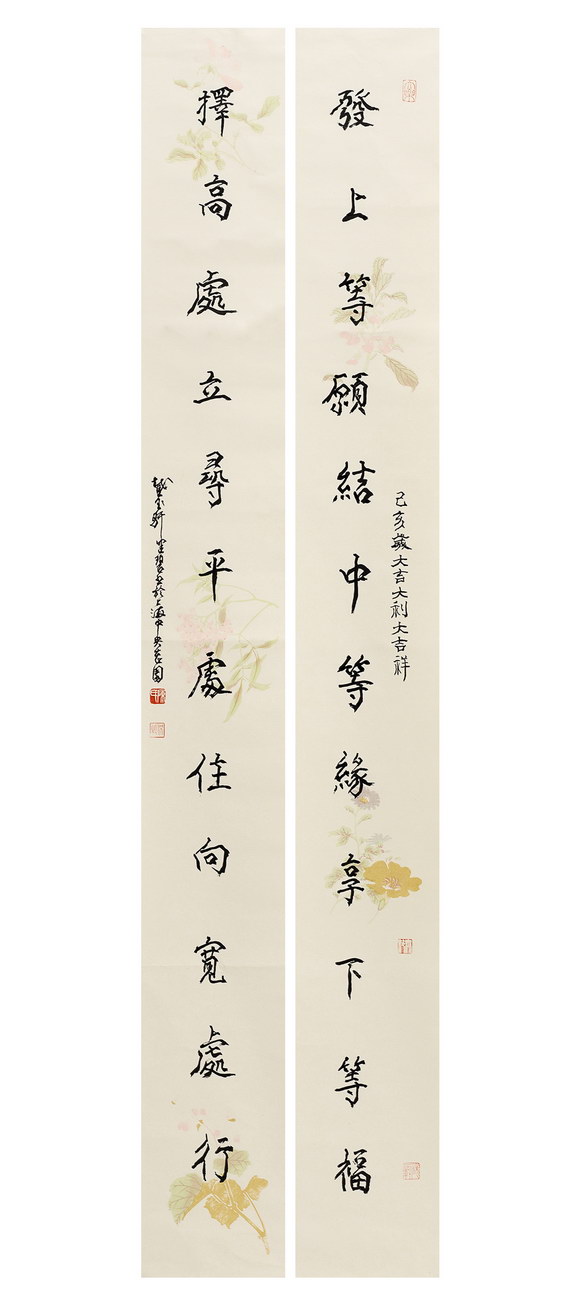 發上等願結中等緣享下等福
己亥歲大吉大利大吉祥
擇高處立尋平處住向寬處行
書於上海中央公園